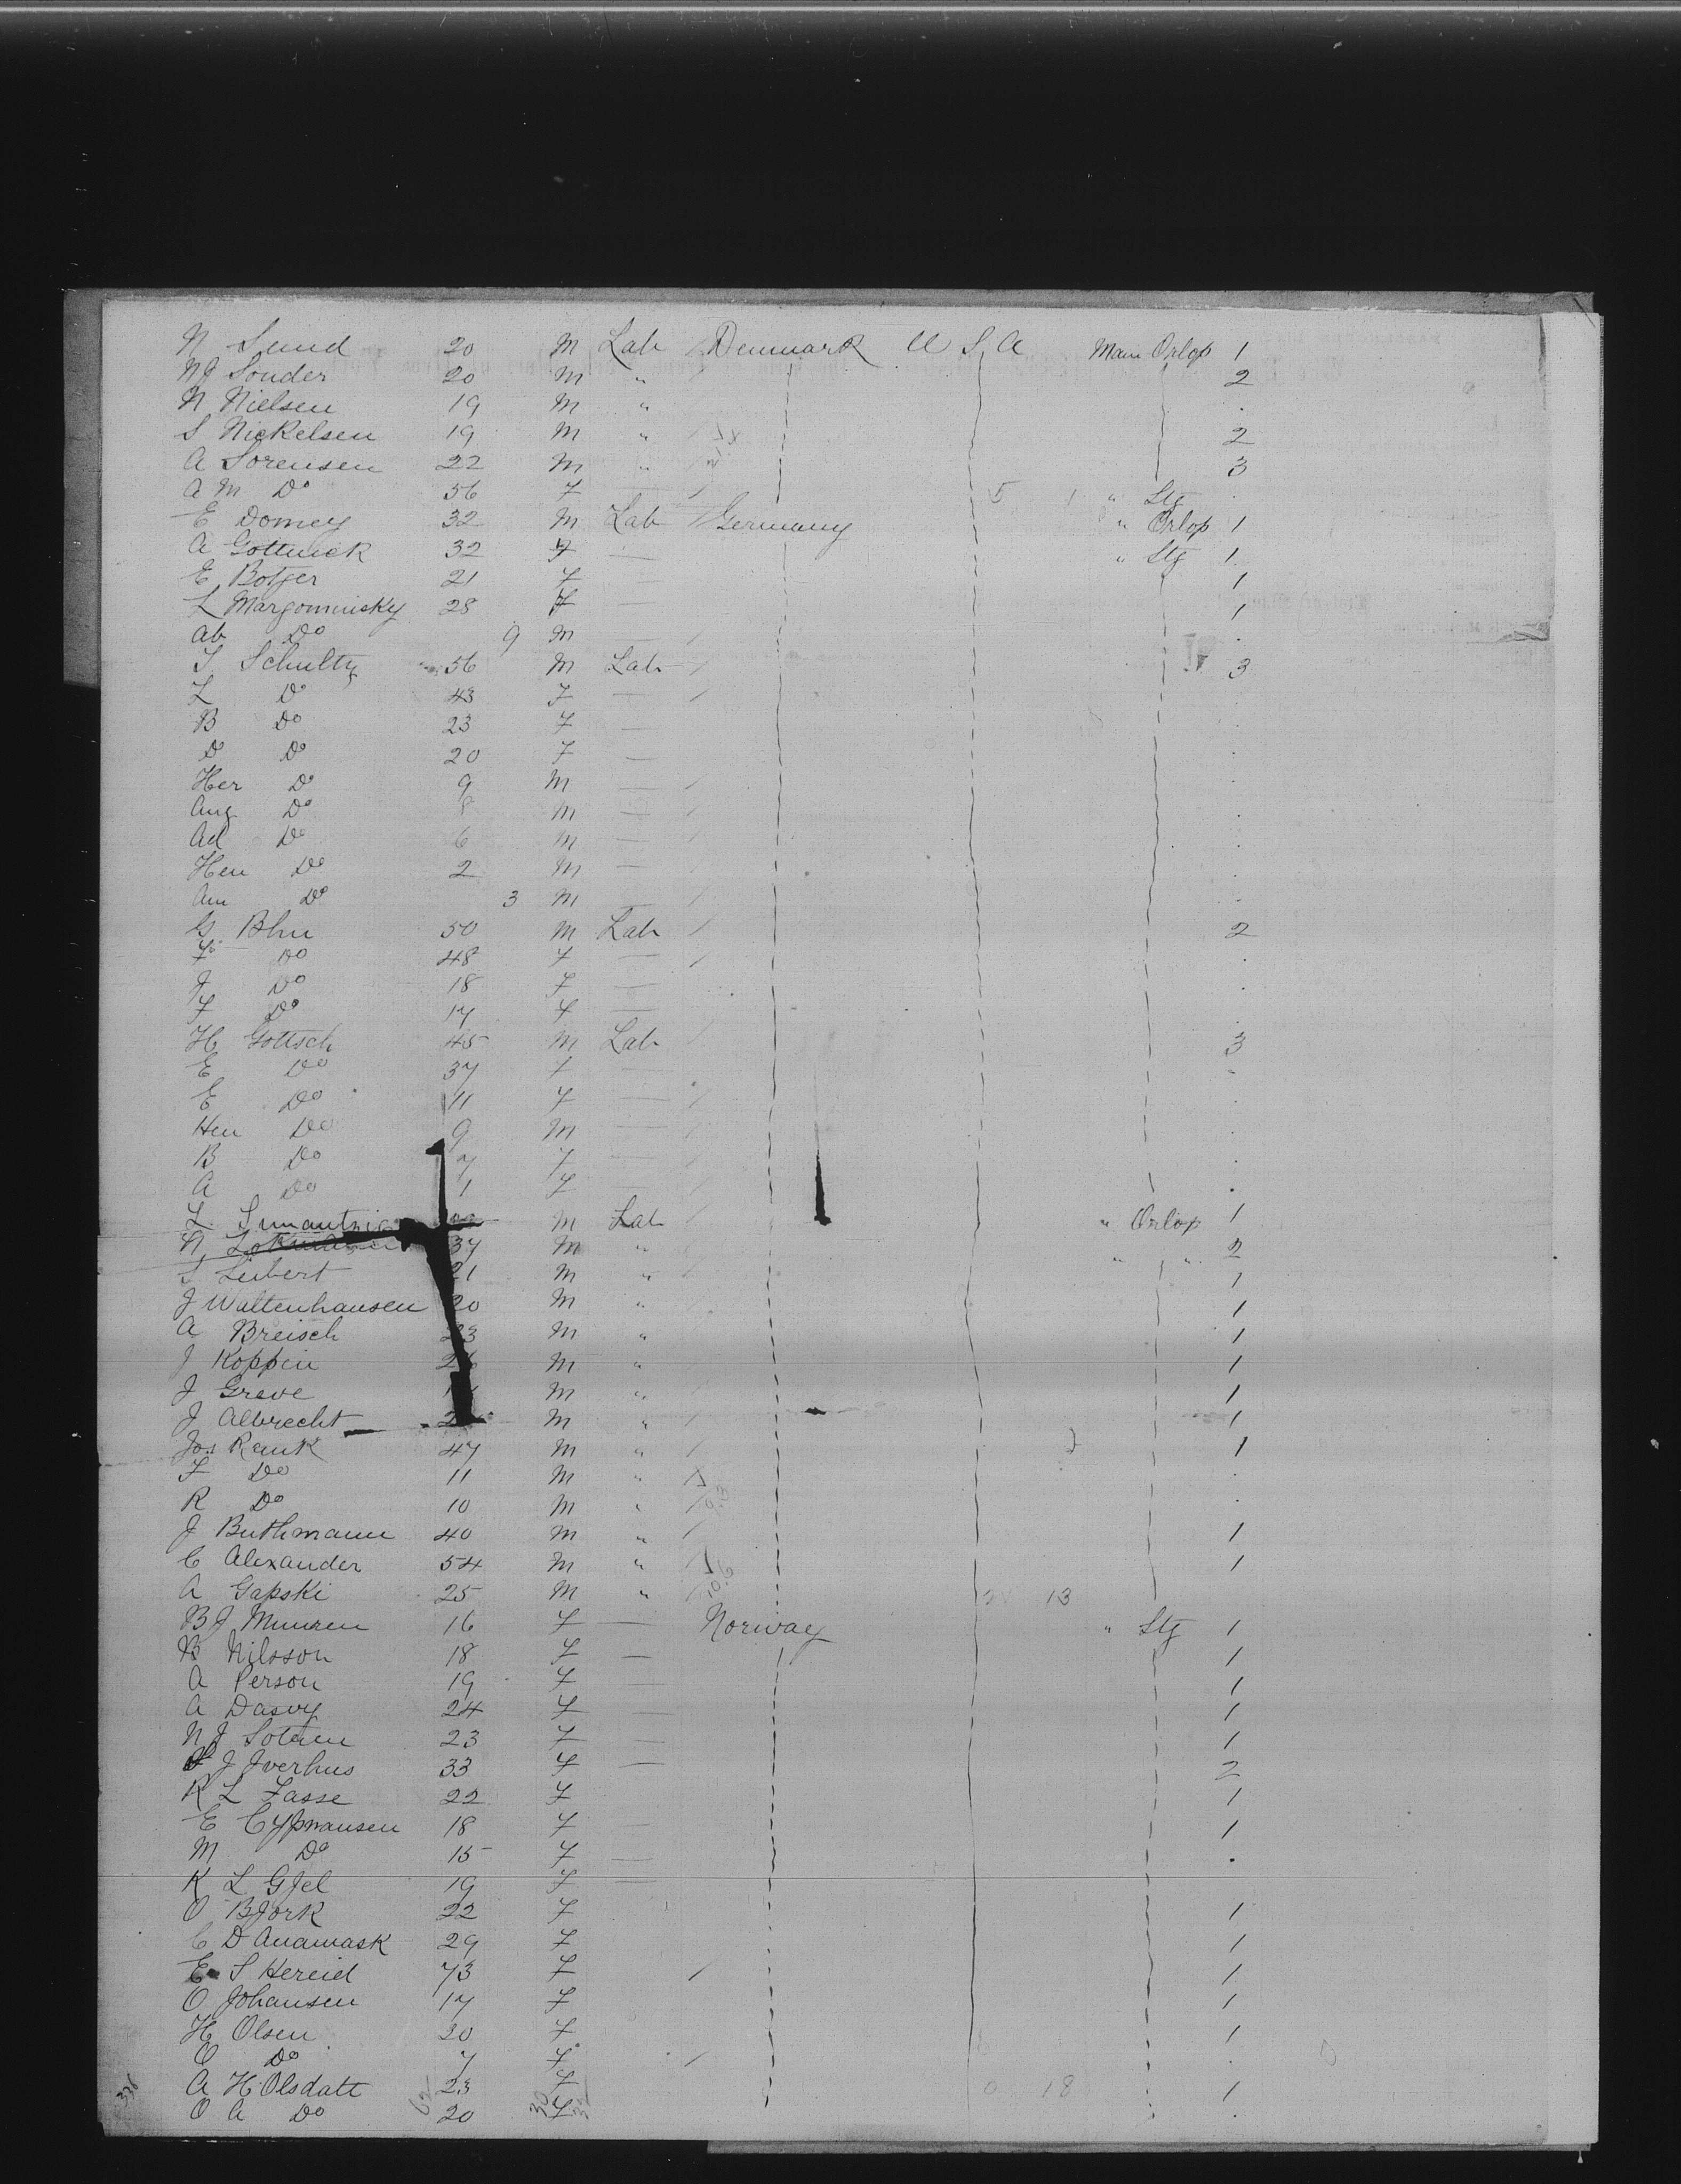 N Sund 20 M Lab Denmark U S A Main Orlop 1
N J Sonder 20 M " 2
N Nielsen 19 M " .
S Nickelsen 19 M " 2
A Sorensen 22 M " 3
A M Do 56 F — 5 " Stg .
E Domey 32 M Lab Germany " Orlop 1
A Gottwick 32 F — " Stg 1
E Botjer 21 F — 1
L Margominsky 28 F — 1
Ab Do 9 M — .
S. Schultz 56 M Lab 3
L Do 43 F — .
B Do 23 F — .
D Do 20 F — .
Her Do 9 M — .
Aug Do 8 M — .
Ad Do 6 M — .
Hen Do 2 M — .
Am Do 3 M — .
G. Blm 50 M Lab 2
F. Do 48 F — .
J Do 18 F — .
F Do 17 F — .
H Gottsch 45 M Lab 3
E Do 37 F — .
E Do 11 F — .
Hen Do 9 M — .
B Do 7 F — .
A Do 1 F — .
L. M Lab " Orlop 1
N. 37 M " " " 2
S Leibert 21 M " 1
J Waltenhausen 20 M " 1
A Breisch 23 M " 1
J Koppin M " 1
J Greve M " 1
J Albrecht M " 1
Jos Renk 47 M " 1
F Do 11 M " .
R Do 10 M " .
J Buthmann 40 M " 1
C Alexander 54 M " 1
A Gapski 25 M " 13
B J Munsen 16 F — Norway " Stg 1
B Nilsson 18 F — 1
A Person 19 F — 1
A Dasvy 24 F — 1
N J Sotaen 23 F — 1
J Iverhus 33 F — 2
R L Fasse 22 F 1
E Cyphrausen 18 F — 1
M Do 15 F — .
K L Gjel 19 F —
O Bjork 22 F 1
C D Anamask 29 F 1
E S Hereid 73 F 1
O Johansen 17 F 1
H Olsen 20 F 1
O Do 7 F .
A H Olsdatt 23 F 0 18 1
O A Do 20 F .